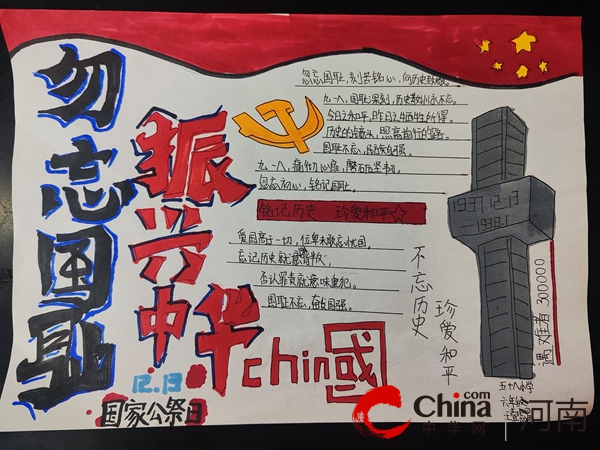 勿忘国耻
振兴中华
勿忘国耻,刻苦铭心,向历史致敬。
九一八,国耻深刻,历史教训永不忘。
今日之和平,昨日之牺牲所得。
历史的镜头,照亮前行的路。
国耻不忘,民族自强。
九一八,痛彻心扉,
勿忘初心,铭记国耻。
铭记历史 珍爱和平☆
爱国高于一切,位卑未敢忘忧国,
忘记历史就意味背叛
否认罪责就意味重犯。
国耻不忘,奋发图强。
1937.12.13
1938.1
遇难者 300000
不忘历史
珍爱和平
chin國
12.13
国家公祭日
五十八小学
China.com
中华网
河南